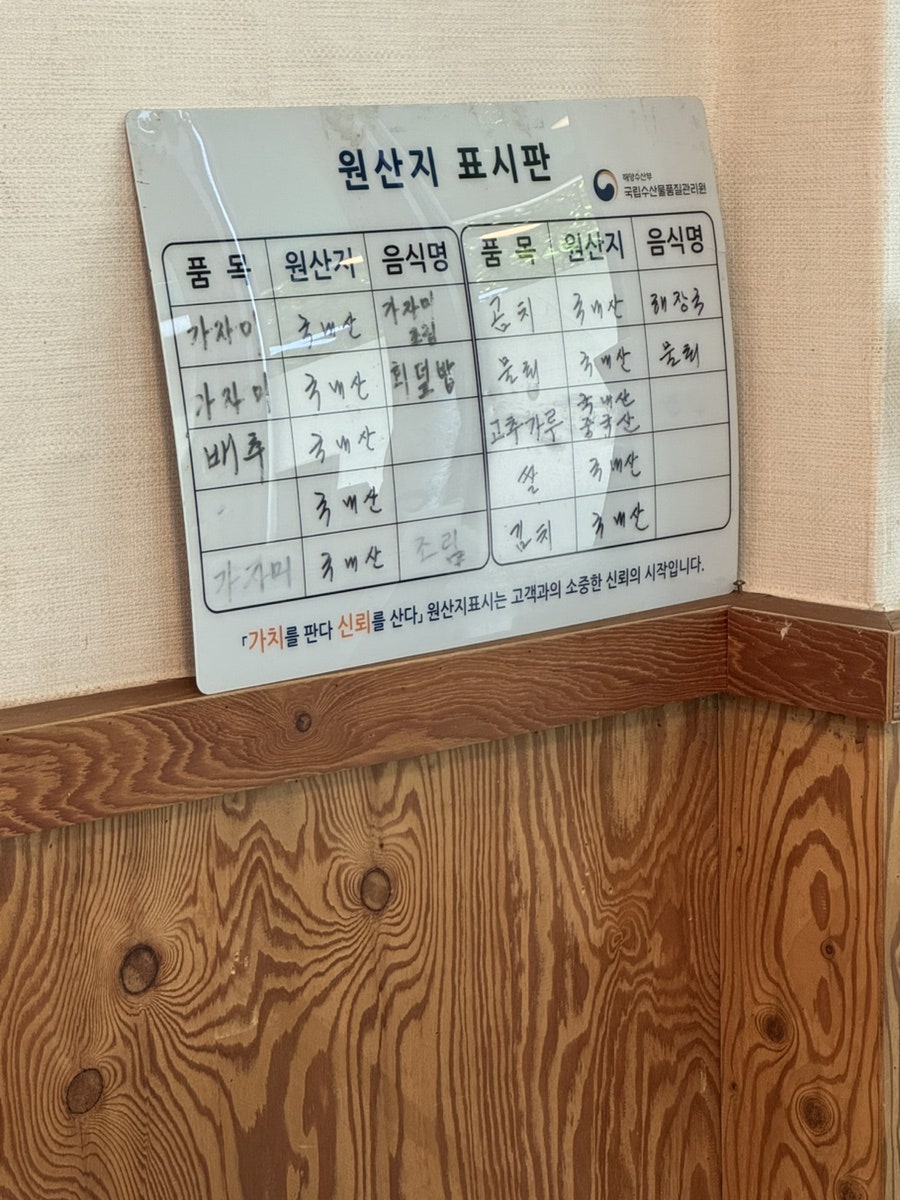 원산지 표시판
해양수산부
국립수산물품질관리원
품 목 원산지 음식명
가자미 국내산 가자미 조림
가자미 국내산 회덮밥
배추 국내산
국내산
가자미 국내산 조림
품 목 원산지 음식명
곰치 국내산 해장국
물회 국내산 물회
고추가루 국내산 중국산
쌀 국내산
김치 국내산
「가치를 판다 신뢰를 산다」 원산지표시는 고객과의 소중한 신뢰의 시작입니다.